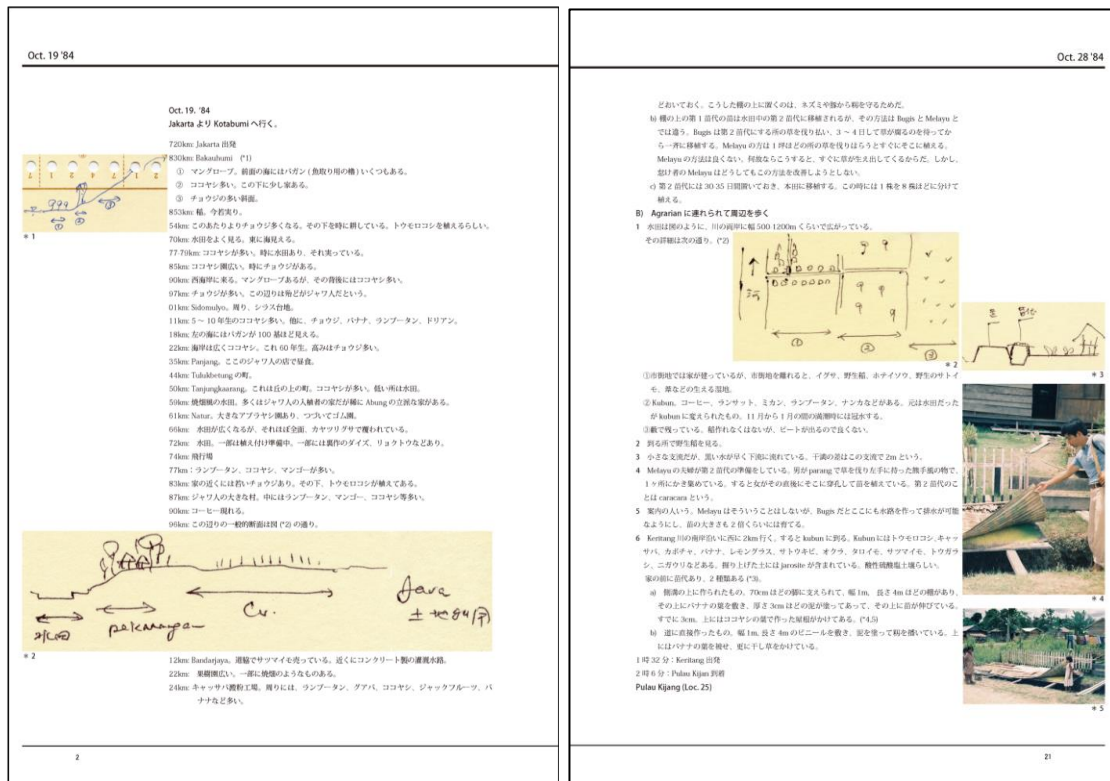 Oct. 19 '84
Oct. 19. '84
Jakarta より Kotabumi へ行く。
720km: Jakarta 出発
830km: Bakauhumi (*1)
① マングローブ。前面の海にはバガン(魚取り用の櫓)いくつもある。
② ココヤシ多い。この下に少し家ある。
③ チョウジの多い斜面。
853km: 稲。今若実り。
54km: このあたりよりチョウジ多くなる。その下を時に耕している。トウモロコシを植えるらしい。
70km: 水田をよく見る。東に海見える。
77-79km: ココヤシが多い。時に水田あり、それ実っている。
85km: ココヤシ園広い。時にチョウジがある。
90km: 西海岸に来る。マングローブあるが、その背後にはココヤシ多い。
97km: チョウジが多い。この辺りは殆どがジャワ人だという。
01km: Sidomulyo。周り、シラス台地。
11km: 5 ～ 10 年生のココヤシ多い。他に、チョウジ、バナナ、ランブータン、ドリアン。
18km: 左の海にはバガンが 100 基ほど見える。
22km: 海岸は広くココヤシ。これ 60 年生。高みはチョウジ多い。
35km: Panjang。ここのジャワ人の店で昼食。
44km: Tulukbetung の町。
50km: Tanjungkaarang。これは丘の上の町。ココヤシが多い。低い所は水田。
59km: 焼畑風の水田。多くはジャワ人の入植者の家だが稀に Abung の立派な家がある。
61km: Natar。大きなアブラヤシ園あり、つづいてゴム園。
66km: 水田が広くなるが、それほぼ全面、カヤツリグサで覆われている。
72km: 水田。一部は植え付け準備中。一部には裏作のダイズ、リョクトウなどあり。
74km: 飛行場
77km : ランブータン、ココヤシ、マンゴーが多い。
83km: 家の近くには若いチョウジあり。その下、トウモロコシが植えてある。
87km: ジャワ人の大きな村。中にはランブータン、マンゴー、ココヤシ等多い。
90km: コーヒー現れる。
96km: この辺りの一般的断面は図 (*2) の通り。
＊1
水田
pekarangan
Java
＊2
12km: Bandarjaya。道脇でサツマイモ売っている。近くにコンクリート製の灌漑水路。
22km: 果樹園広い。一部に焼畑のようなものある。
24km: キャッサバ澱粉工場。周りには、ランブータン、グアバ、ココヤシ、ジャックフルーツ、バ
ナナなど多い。
2
Oct. 28 '84
どおいておく。こうした棚の上に置くのは、ネズミや豚から籾を守るためだ。
b) 棚の上の第 1 苗代の苗は水田中の第 2 苗代に移植されるが、その方法は Bugis と Melayu と
では違う。Bugis は第 2 苗代にする所の草を伐り払い、3 ～ 4 日して草が腐るのを待ってか
ら一斉に移植する。Melayu の方は 1 坪ほどの所の草を伐りはらうとすぐにそこに植える。
Melayu の方法は良くない。何故ならこうすると、すぐに草が生え出してくるからだ。しかし、
怠け者の Melayu はどうしてもこの方法を改善しようとしない。
c) 第 2 苗代には 30-35 日間置いておき、本田に移植する。この時には 1 株を 8 株ほどに分けて
植える。
B) Agrarian に連れられて周辺を歩く
1 水田は図のように、川の両岸に幅 500-1200m くらいで広がっている。
その詳細は次の通り。(*2)
① ② ③
＊2
＊3
①市街地では家が建っているが、市街地を離れると、イグサ、野生稲、ホテイソウ、野生のサトイ
モ、葦などの生える湿地。
② Kubun。コーヒー、ランサット、ミカン、ランブータン、ナンカなどがある。元は水田だった
が kubun に変えられたもの。11 月から 1 月の間の満潮時には冠水する。
③藪で残っている。稲作れなくはないが、ピートが出るので良くない。
2 到る所で野生稲を見る。
3 小さな支流だが、黒い水が早く下流に流れている。干満の差はこの支流で 2m という。
4 Melayu の夫婦が第 2 苗代の準備をしている。男が parang で草を伐り左手に持った熊手風の物で、
1 ヶ所にかき集めている。すると女がその直後にそこに穿孔して苗を植えている。第 2 苗代のこ
とは caracara という。
5 案内の人いう。Melayu はそういうことはしないが、Bugis だとここにも水路を作って排水が可能
なようにし、苗の大きさも 2 倍くらいには育てる。
6 Keritang 川の南岸沿いに西に 2km 行く。すると kubun に到る。Kubun にはトウモロコシ、キャッ
サバ、カボチャ、バナナ、レモングラス、サトウキビ、オクラ、タロイモ、サツマイモ、トウガラ
シ、ニガウリなどある。掘り上げた土には jarosite が含まれている。酸性硫酸塩土壌らしい。
家の前に苗代あり。2 種類ある (*3)。
a) 側溝の上に作られたもの。70cm ほどの脚に支えられて、幅 1m、長さ 4m ほどの棚があり、
その上にバナナの葉を敷き、厚さ 3cm ほどの泥が塗ってあって、その上に苗が伸びている。
すでに 3cm。上にはココヤシの葉で作った屋根がかけてある。(*4,5)
b) 道に直接作ったもの。幅 1m、長さ 4m のビニールを敷き、泥を塗って籾を播いている。上
にはバナナの葉を被せ、更に干し草をかけている。
1 時 32 分 : Keritang 出発
2 時 6 分 : Pulau Kijan 到着
Pulau Kijang (Loc. 25)
＊4
＊5
21